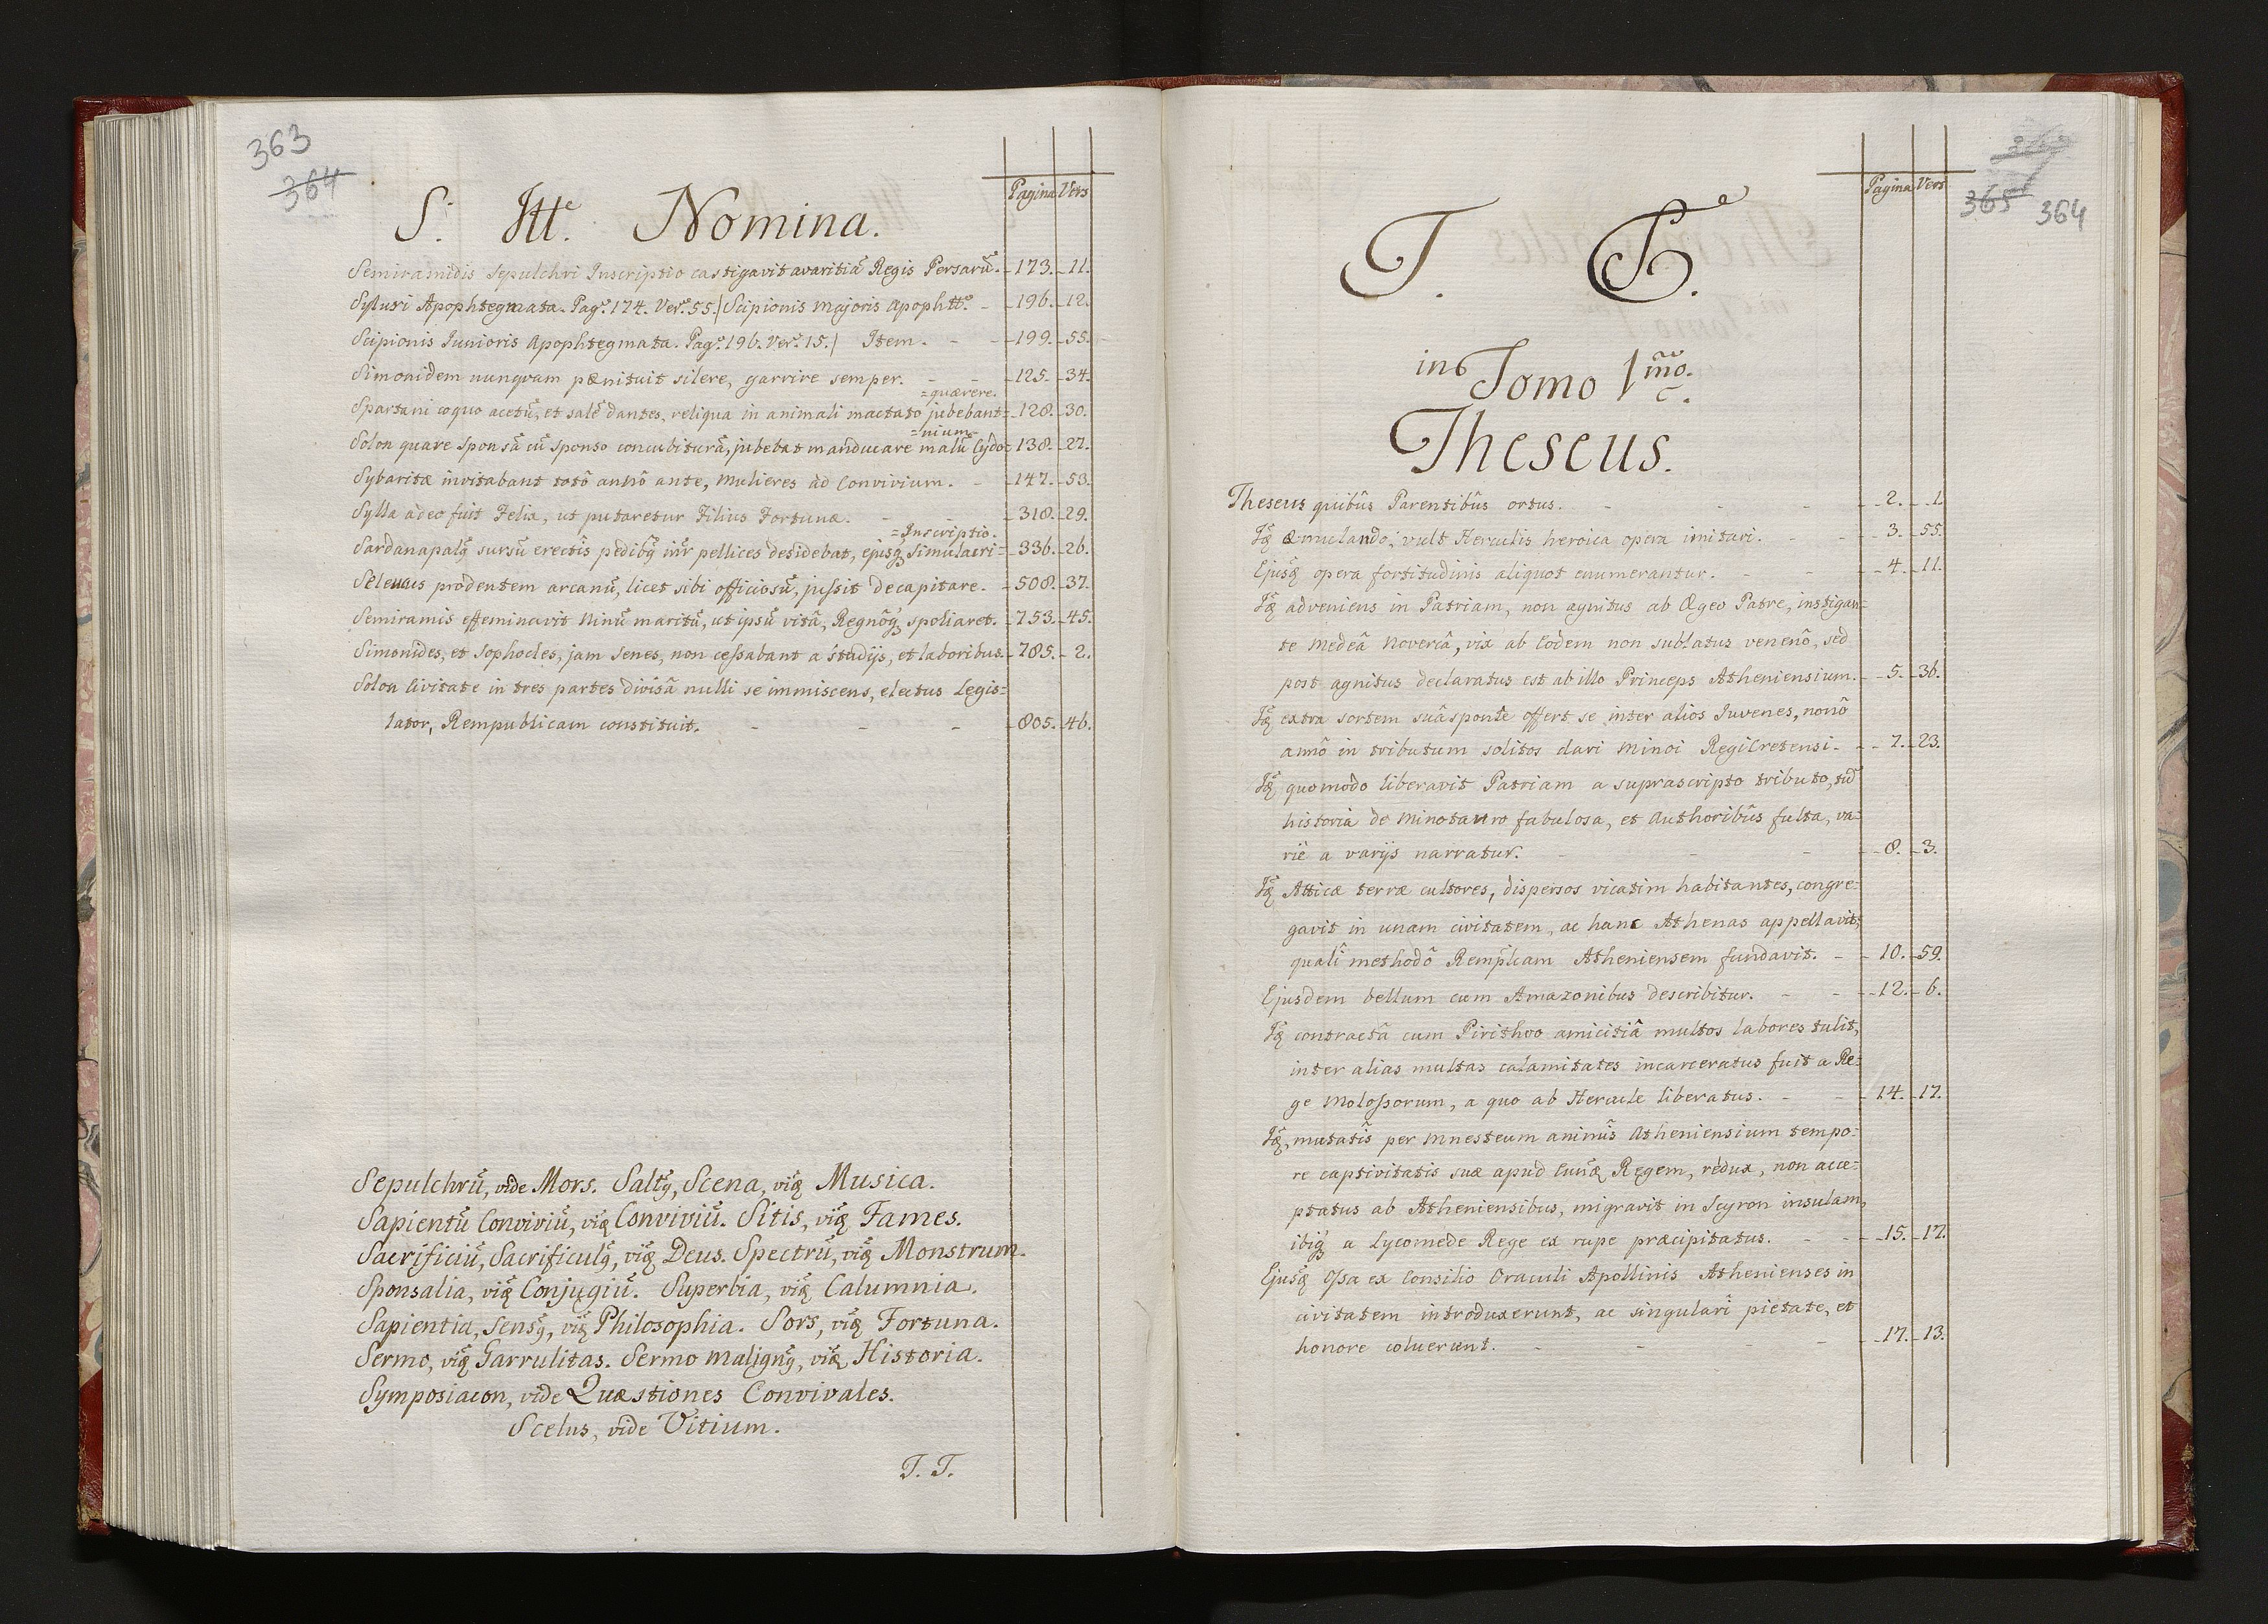 363
364
Pagina Vers
S. Ittẽ. Nomina.
Semiramidis Sepulchri Inscriptio castigavit avaritiã Regis Persarũ. 173. 11.
Syluri Apophtegmata. Pag. 174. Ver. 55. / Scipionis Majoris Apopht. 196. 12.
Scipionis Junioris Apophtegmata. Pag. 196. Ver. 15. / Item. 199. 55.
Simonidem nunqvam pænituit silere, garrire semper. 125. 34.
=quærere.
Spartani coquo acetũ, et salẽ dantes, reliqua in animali mactato jubebant= 128. 30.
=nium.
Solon quare Sponsã cũ sponso concubiturã, jubebat manducare malũ Cydo= 138. 27.
Sybaritæ invitabant totô annô ante, Mulieres ad Convivium. 147. 53.
Sylla adeo fuit Felix, ut putaretur Filius Fortunæ. 318. 29.
=Inscriptio.
Sardanapalꝰ sursũ erectis pedibꝰ inr pellices desidebat, ejusꝗ simulacri= 336. 26.
Seleucus prodentem arcanũ, licet sibi officiosũ, jussit decapitare. 508. 37.
Semiramis effeminavit Ninũ maritũ, ut ipsũ vitâ, Regnôꝗ spoliaret. 753. 45.
Simonides, et Sophocles, jam Senes, non cessabant a studijs, et laboribus. 785. 2.
Solon Civitate in tres partes divisâ nulli se immiscens, electus Legis=
lator, Rempublicam constituit. 805. 46.
Sepulchrũ, vide Mors. Saltꝰ, Scena, viꝗ Musica.
Sapientũ Conviviũ, viꝗ Conviviũ. Sitis, viꝗ Fames.
Sacrificiũ, Sacrificulꝰ, viꝗ Deus. Spectrũ, viꝗ Monstrum.
Sponsalia, viꝗ Conjugiũ. Superbia, viꝗ Calumnia.
Sapientia, Sensꝰ, viꝗ Philosophia. Sors, viꝗ Fortuna.
Sermo, viꝗ Garrulitas. Sermo malignꝰ, viꝗ Historia.
Symposiacon, vide Quæstiones Convivales.
Scelus, vide Vitium.
T. T.
Pagina Vers
365 364
T.
in Tomo 1mo.
Theseus.
Theseus quibûs Parentibûs ortus. 2. 1.
Iꝗ æmulando, vult Herculis heroica opera imitari. 3. 55.
Ejusꝗ opera fortitudinis aliquot enumerantur. 4. 11.
Iꝗ adveniens in Patriam, non agnitus ab Ægeo Patre, instigan=
te Medeâ Novercâ, vix ab Eodem non sublatus venenô, sed
post agnitus declaratus est ab illo Princeps Atheniensium. 5. 36.
Iꝗ extra sortem suâ sponte offert se inter alios Juvenes, nonô
annô in tributum solitos dari Minoi Regi Cretensi. 7. 23.
Iꝗ quomodo liberavit Patriam a suprascripto tributo, tũ
historia de Minotauro fabulosa, et Authoribûs fulta, va=
riè a varijs narratur. 8. 3.
Iꝗ Atticæ terræ cultores, dispersos vicatim habitantes, congre=
gavit in unam civitatem, ac hanc Athenas appellavit,
quali methodô Remplicam Atheniensem fundavit. 10. 59.
Ejusdem bellum cum Amazonibus describitur. 12. 6.
Iꝗ contractâ cum Pirithoo amicitiâ multos labores tulit,
inter alias multas calamitates incarceratus fuit a Re=
ge Molossorum, a quo ab Hercule liberatus. 14. 17.
Iꝗ, mutatîs per Mnesteum animîs Atheniensium tempo=
re captivitatis suæ apud Eunꝗ Regem, redux, non acce=
ptatus ab Atheniensibus, migravit in Scyron insulam,
ibiꝗ a Lycomede Rege ex rupe præcipitatus. 15. 17.
Ejusꝗ Ossa ex Consilio Oraculi Apollinis Athenienses in
civitatem introduxerunt, ac singulari pietate, et
honore coluerunt. 17. 13.